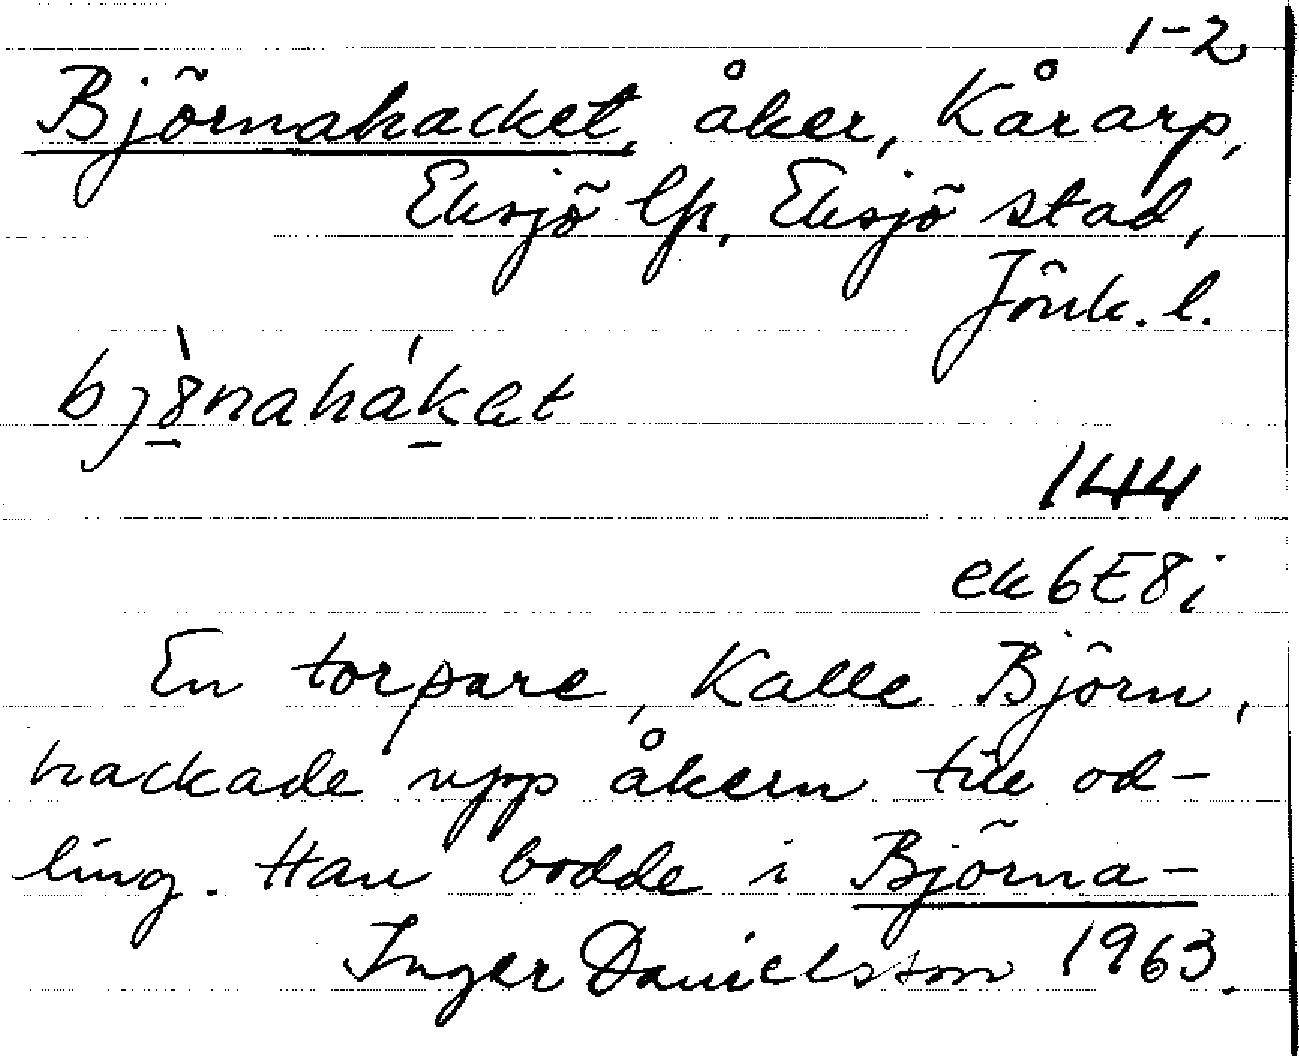 1-2
Björnahacket, åker, Kårarp,
Eksjö lfs, Eksjö stad,
Jönk. l.
144
ek6E8i
En torpare, Kalle Björn,
hackade upp åkern till od-
ling. Han bodde i Björna-
Inger Danielsson 1963.